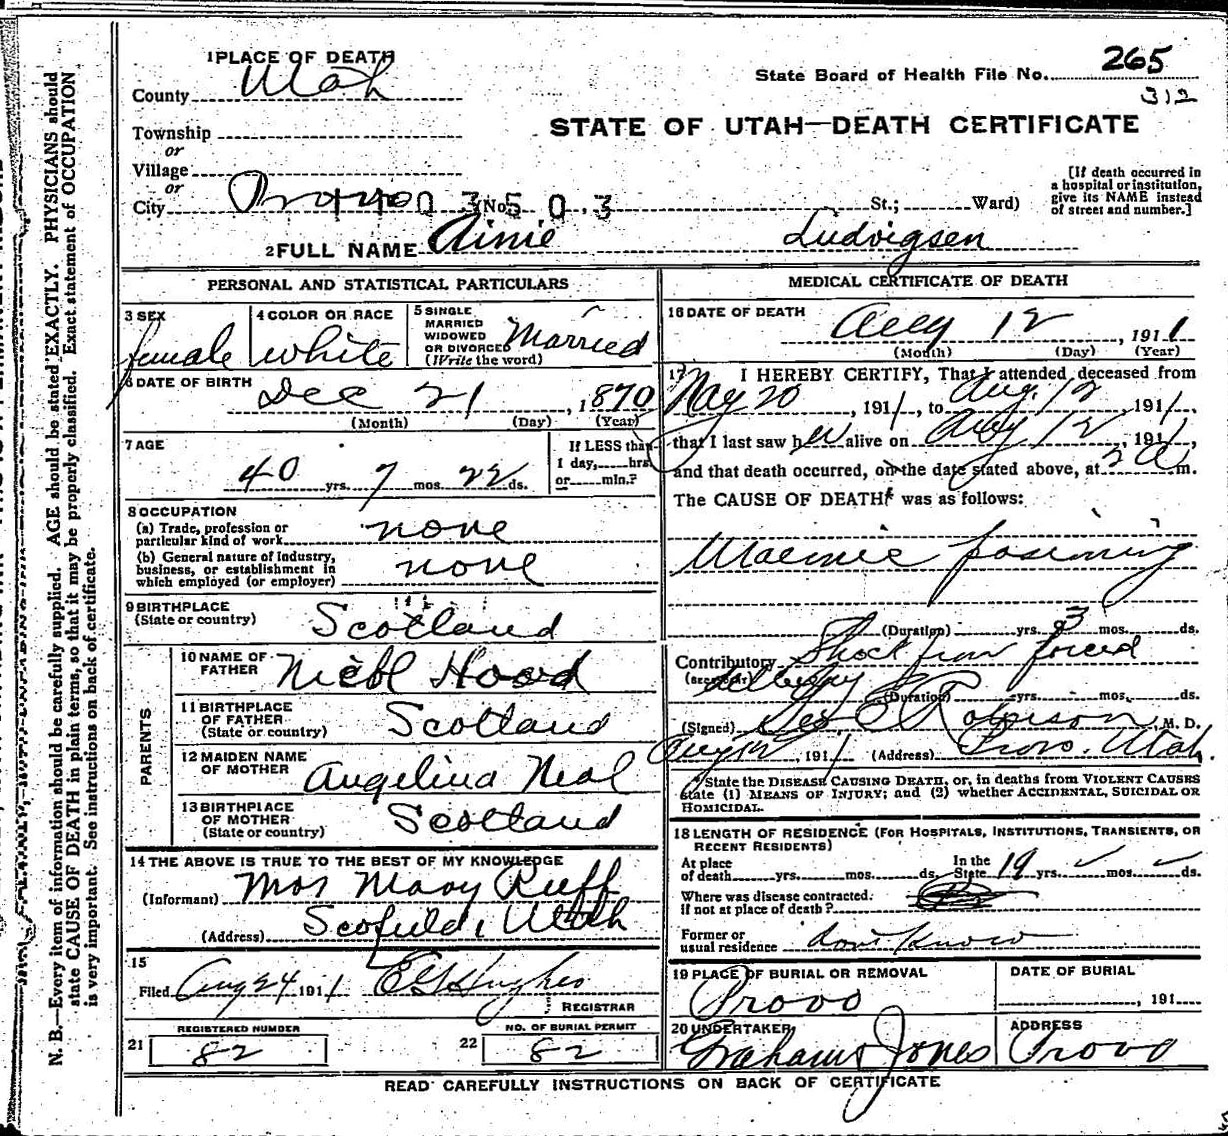 N. B.—Every item of information should be carefully supplied. AGE should be stated EXACTLY. PHYSICIANS should
state CAUSE OF DEATH in plain terms, so that it may be properly classified. Exact statement of OCCUPATION
is very important. See instructions on back of certificate.
1 PLACE OF DEATH
County Utah
State Board of Health File No. 265
312
STATE OF UTAH—DEATH CERTIFICATE
Township
or
Village
or
City Provo (No. St.; Ward)
0 3 5 0 3
[If death occurred in
a hospital or institution,
give its NAME instead
of street and number.]
2 FULL NAME Ainie Ludvigsen
PERSONAL AND STATISTICAL PARTICULARS
3 SEX female
4 COLOR OR RACE white
5 SINGLE
MARRIED
WIDOWED
OR DIVORCED
(Write the word) Married
6 DATE OF BIRTH
Dec 21, 1870
(Month) (Day) (Year)
7 AGE
40 yrs. 7 mos. 22 ds.
If LESS than
1 day, hrs.
or min.?
8 OCCUPATION
(a) Trade, profession or
particular kind of work none
(b) General nature of industry,
business, or establishment in
which employed (or employer) none
9 BIRTHPLACE
(State or country) Scotland
PARENTS
10 NAME OF
FATHER Niebl Hood
11 BIRTHPLACE
OF FATHER
(State or country) Scotland
12 MAIDEN NAME
OF MOTHER Angelina Neal
13 BIRTHPLACE
OF MOTHER
(State or country) Scotland
14 THE ABOVE IS TRUE TO THE BEST OF MY KNOWLEDGE
(Informant) Mrs Mary Ruff
(Address) Scofield, Utah
15
Filed Aug 24 1911 E G Hughes
REGISTRAR
REGISTERED NUMBER
21 82
NO. OF BURIAL PERMIT
22 82
MEDICAL CERTIFICATE OF DEATH
16 DATE OF DEATH
Aug 12, 1911
(Month) (Day) (Year)
17 I HEREBY CERTIFY, That I attended deceased from
May 20, 1911, to Aug. 12 1911,
that I last saw her alive on Aug 12, 1911,
and that death occurred, on the date stated above, at 2 a m.
The CAUSE OF DEATH* was as follows:
Uraemic posining
(Duration) yrs. 3 mos. ds.
Contributory Shock from forced
(Secondary) delivery
(Duration) yrs. mos. ds.
(Signed) Geo E Robison, M. D.
Aug 12, 1911 (Address) Provo. Utah.
* State the DISEASE CAUSING DEATH, or, in deaths from VIOLENT CAUSES
state (1) MEANS OF INJURY; and (2) whether ACCIDENTAL, SUICIDAL OR
HOMICIDAL.
18 LENGTH OF RESIDENCE (FOR HOSPITALS, INSTITUTIONS, TRANSIENTS, OR
RECENT RESIDENTS)
At place
of death yrs. mos. ds.
In the
State 19 yrs. mos. ds.
Where was disease contracted.
if not at place of death?
Former or
usual residence dont know
19 PLACE OF BURIAL OR REMOVAL
Provo
DATE OF BURIAL
, 191
20 UNDERTAKER
Graham & Jones
ADDRESS
Provo
READ CAREFULLY INSTRUCTIONS ON BACK OF CERTIFICATE